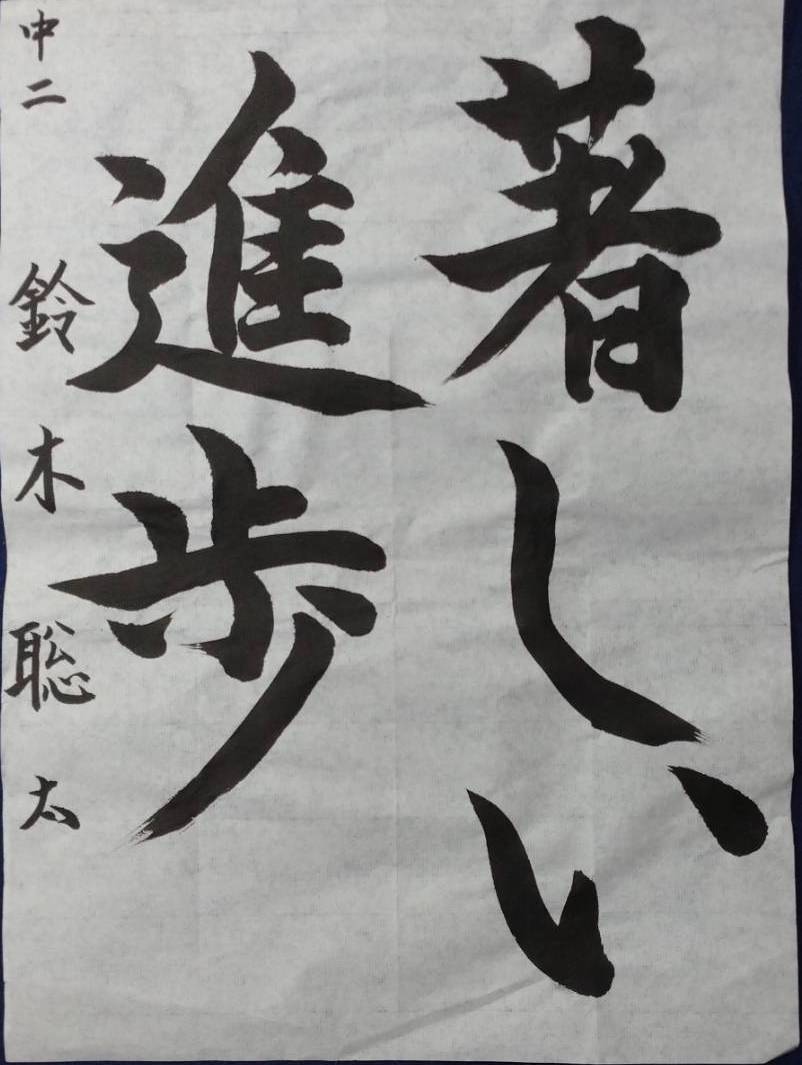 著しい
進歩
中二 鈴木聡太